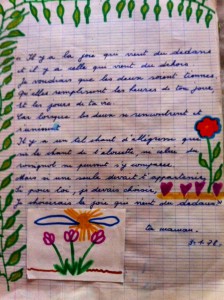 " Il y a la joie qui vient du dedans
et il y a celle qui vient du dehors.
Je voudrais que les deux soient tiennes
Qu'elles remplissent les heures de ton jour
Et les jours de ta vie
Car lorsque les deux se rencontrent et
s'unissent
Il y a un tel chant d'allégresse que
ni le chant d'alouette ni celui du
rossignol ne peuvent s'y comparer.
Mais si une seule devait t'appartenir
Si pour toi, je devais choisir,
Je choisirais la joie qui vient du dedans "
ta maman.